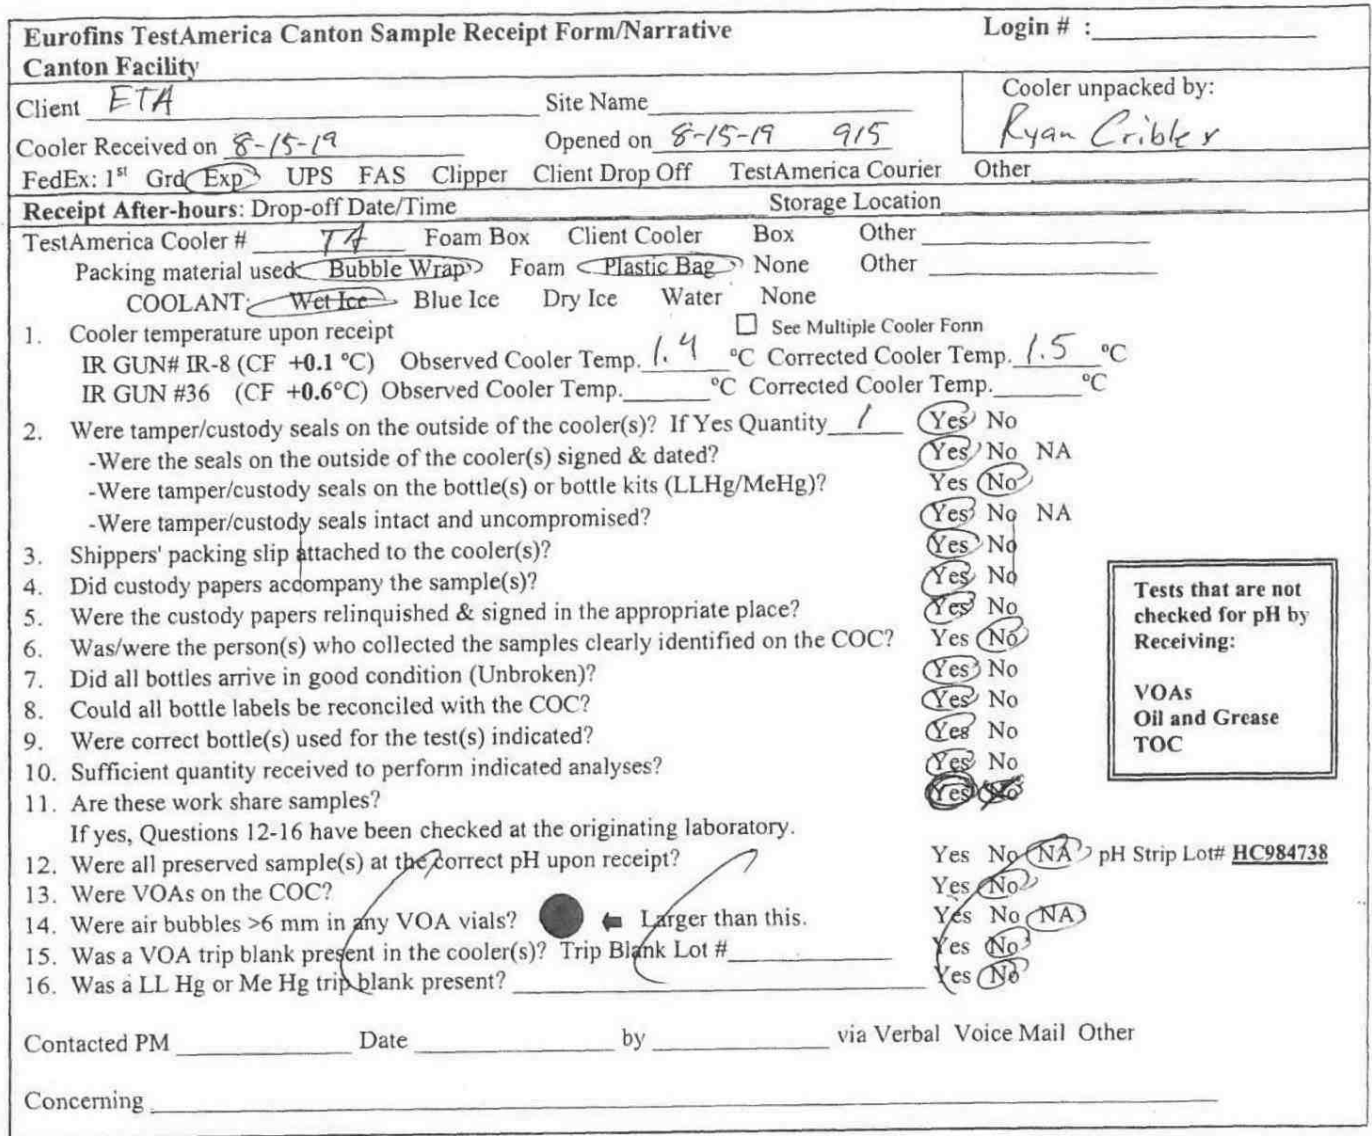 Eurofins TestAmerica Canton Sample Receipt Form/Narrative Login # :
Canton Facility
Client ETA Site Name Cooler unpacked by:
Cooler Received on 8-15-19 Opened on 8-15-19 915 Ryan Cribler
FedEx: 1st Grd Exp UPS FAS Clipper Client Drop Off TestAmerica Courier Other
Receipt After-hours: Drop-off Date/Time Storage Location
TestAmerica Cooler # TA Foam Box Client Cooler Box Other
Packing material used: Bubble Wrap Foam Plastic Bag None Other
COOLANT: Wet Ice Blue Ice Dry Ice Water None
1. Cooler temperature upon receipt ☐ See Multiple Cooler Form
IR GUN# IR-8 (CF +0.1 °C) Observed Cooler Temp. 1.4 °C Corrected Cooler Temp. 1.5 °C
IR GUN #36 (CF +0.6°C) Observed Cooler Temp. °C Corrected Cooler Temp. °C
2. Were tamper/custody seals on the outside of the cooler(s)? If Yes Quantity 1 Yes No
-Were the seals on the outside of the cooler(s) signed & dated? Yes No NA
-Were tamper/custody seals on the bottle(s) or bottle kits (LLHg/MeHg)? Yes No
-Were tamper/custody seals intact and uncompromised? Yes No NA
3. Shippers' packing slip attached to the cooler(s)? Yes No
4. Did custody papers accompany the sample(s)? Yes No
5. Were the custody papers relinquished & signed in the appropriate place? Yes No
6. Was/were the person(s) who collected the samples clearly identified on the COC? Yes No
7. Did all bottles arrive in good condition (Unbroken)? Yes No
8. Could all bottle labels be reconciled with the COC? Yes No
9. Were correct bottle(s) used for the test(s) indicated? Yes No
10. Sufficient quantity received to perform indicated analyses? Yes No
11. Are these work share samples? Yes No
If yes, Questions 12-16 have been checked at the originating laboratory.
12. Were all preserved sample(s) at the correct pH upon receipt? Yes No NA pH Strip Lot# HC984738
13. Were VOAs on the COC? Yes No
14. Were air bubbles >6 mm in any VOA vials? Larger than this. Yes No NA
15. Was a VOA trip blank present in the cooler(s)? Trip Blank Lot # Yes No
16. Was a LL Hg or Me Hg trip blank present? Yes No
Tests that are not
checked for pH by
Receiving:
VOAs
Oil and Grease
TOC
Contacted PM Date by via Verbal Voice Mail Other
Concerning